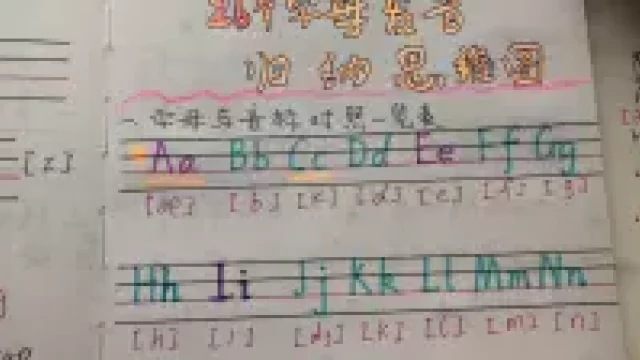 26个字母发音
归纳思维图
一、字母与音标对照一览表
Aa Bb Cc Dd Ee Ff Gg
[æ] [b] [k] [d] [e] [f] [g]
[z]
Hh Ii Jj Kk Ll Mm Nn
[h] [i] [dʒ] [k] [l] [m] [n]